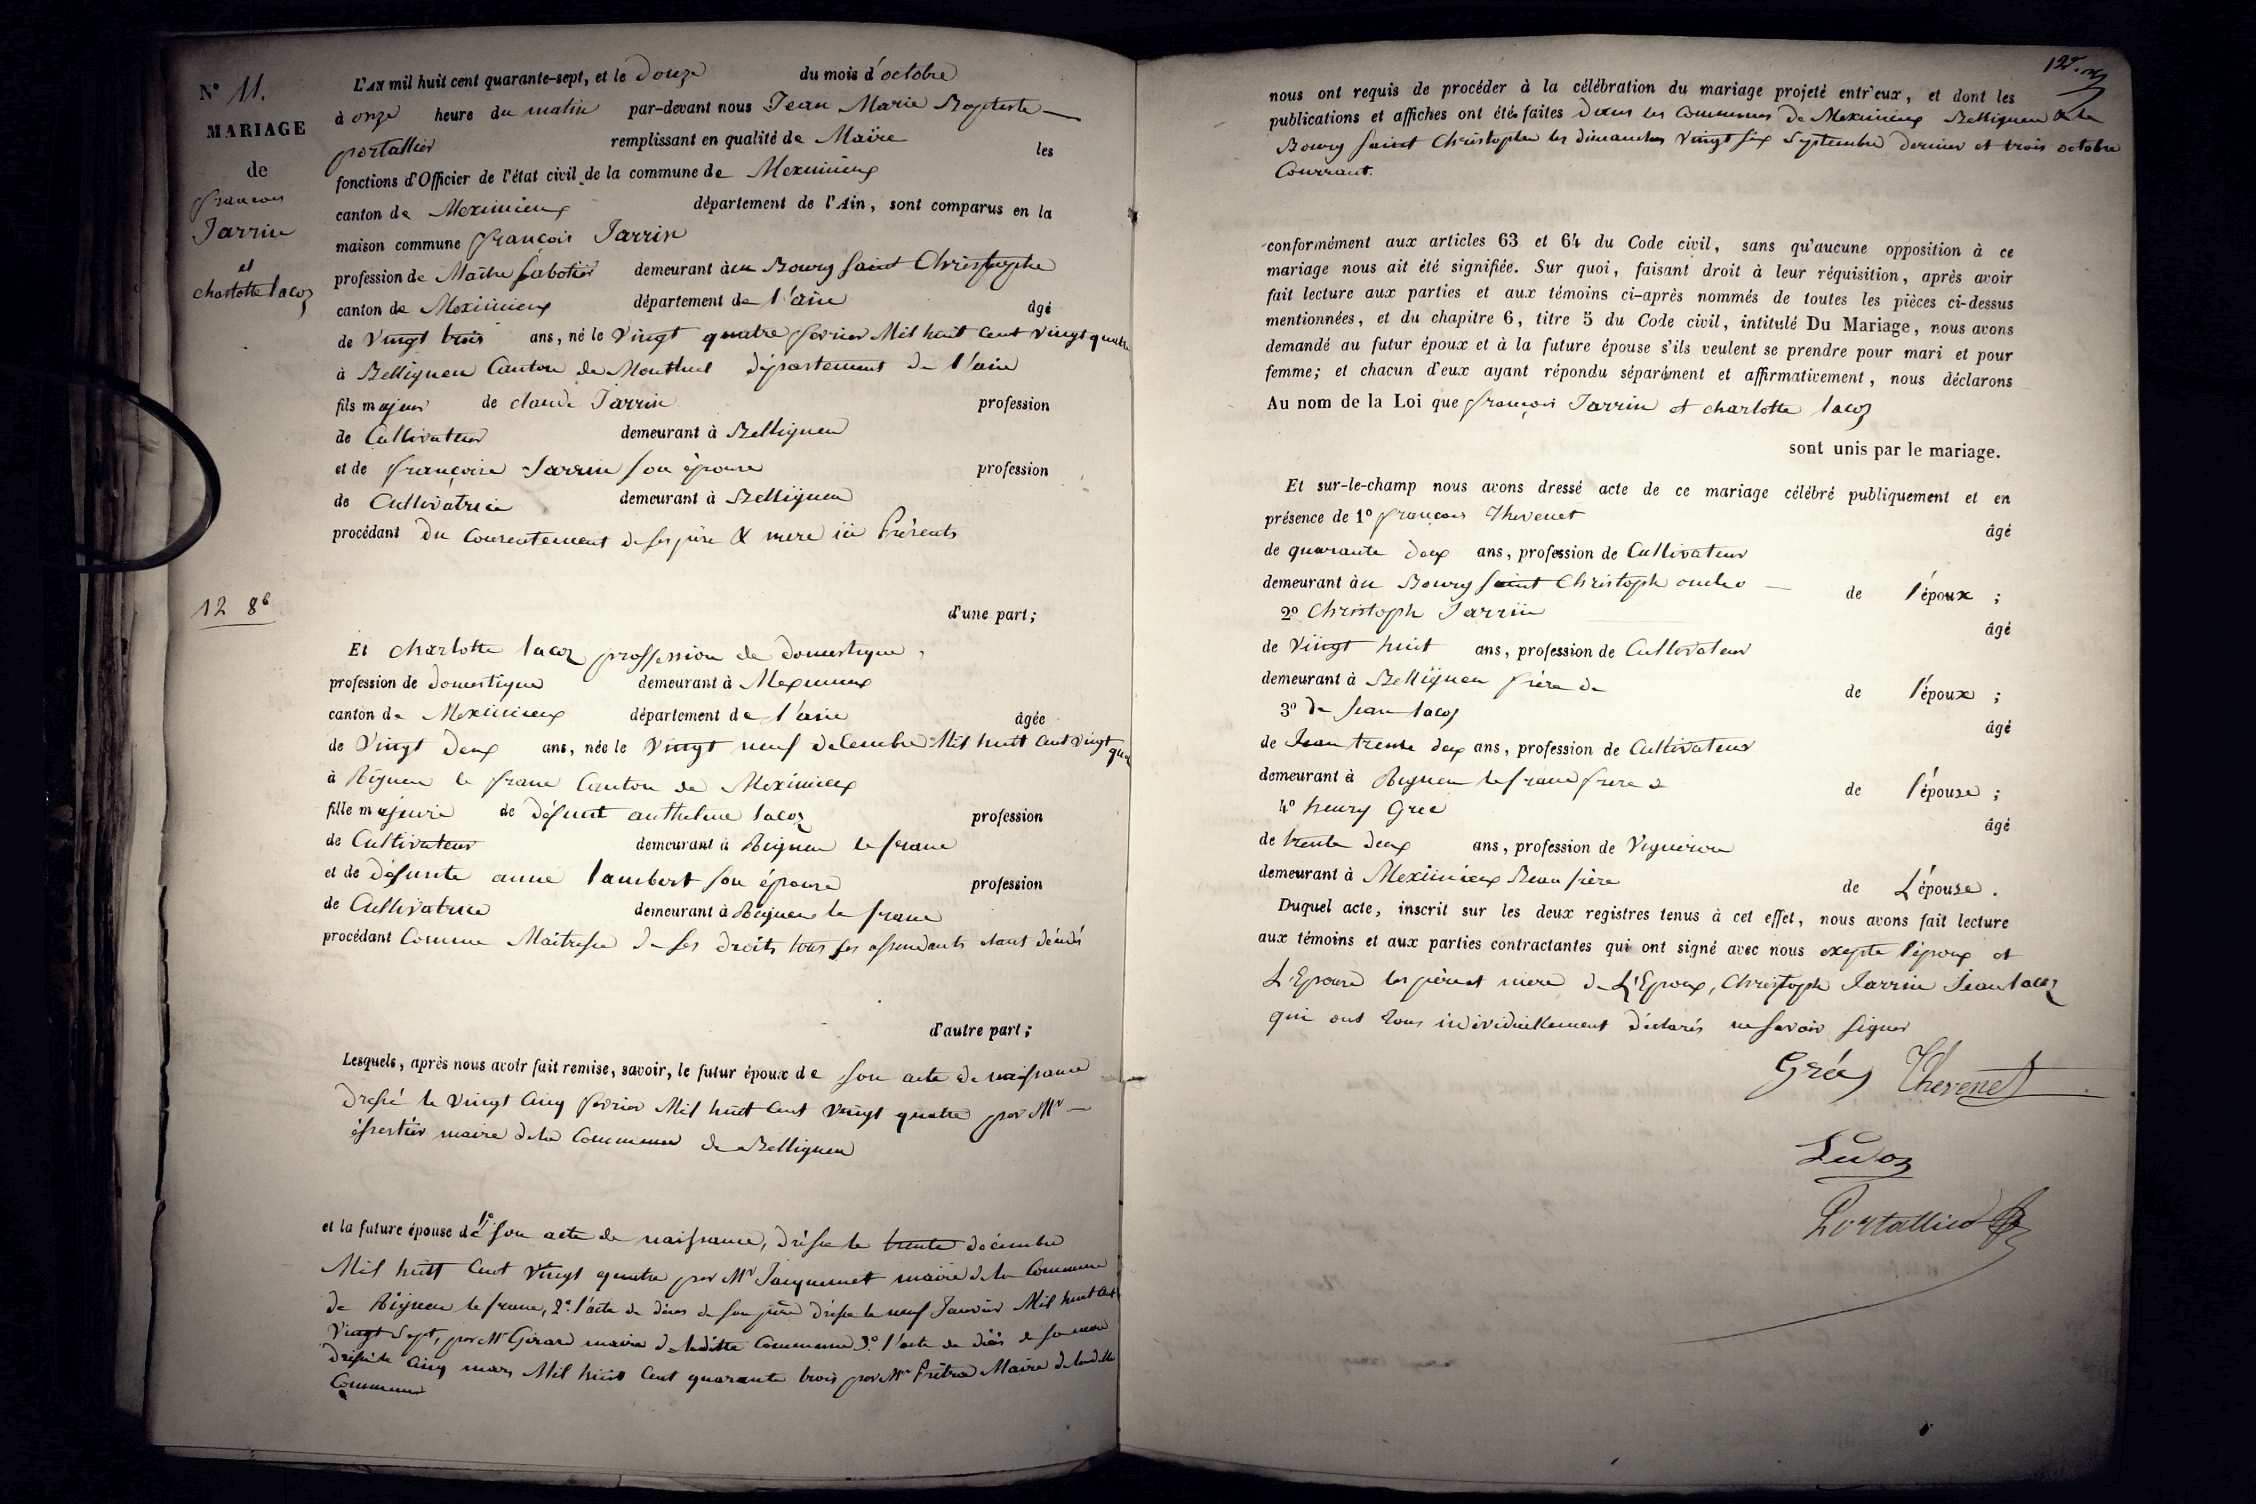 N° 11.
MARIAGE
de
françois
Jarrin
et
charlotte lacoz
12 86
L'AN mil huit cent quarante-sept, et le Douze du mois d'octobre
à onze heure du matin par-devant nous Jean Marie Baptiste
portallier remplissant en qualité de Maire les
fonctions d'Officier de l'état civil de la commune de Meximieux
canton de Meximieux département de l'Ain, sont comparus en la
maison commune françois Jarrin
profession de Maître Sabotier demeurant àu Bourg saint Christophe
canton de Meximieux département de l'ain âgé
de Vingt trois ans, né le Vingt quatre fevrier Mil huit Cent Vingt quatre
à Belligneu Canton de Montluel département de l'ain
fils majeur de claude Jarrin profession
de Cultivateur demeurant à Belligneu
et de françoise Jarrin son épouse profession
de Cultivatrice demeurant à Belligneu
procédant du Consentement de ses père & mere ici Présents
d'une part;
Et charlotte lacoz proffession de domestique,
profession de domestique demeurant à Meximieux
canton de Meximieux département de l'ain âgée
de Vingt deux ans, née le Vingt neuf decembre Mil huit Cent Vingt qua
à Rigneu le franc Canton de Meximieux
fille majeure de défunt anthelme lacoz profession
de Cultivateur demeurant à Rigneu le franc
et de défunte anne lambert son épouse profession
de Cultivatrice demeurant à Rigneu le franc
procédant Comme Maîtresse de ses droits tous ses assendants étant décédés
d'autre part;
Lesquels, après nous avoir fait remise, savoir, le futur époux de son acte de naissance
Dressé le Vingt Cinq fevrier Mil huit Cent Vingt quatre par Mr
maire de la Commune de Belligneu
et la future épouse de 1° son acte de naissance, dressé le trente décembre
Mil huit Cent Vingt quatre par Mr Jacquemet maire de la Commune
de Rigneu le franc, 2° l'acte de déces de son père dressé le neuf Janvier Mil huit Cent
Vingt Sept, par Mr Girard maire de laditte Commune 3° l'acte de décès de sa mere
dressé le Cinq mars Mil huit Cent quarante trois par Mr Prêtre Maire de laditte
Commune
nous ont requis de procéder à la célébration du mariage projeté entr'eux, et dont les
publications et affiches ont étés faites dans les Communes de Meximieux Belligneu & le
Bourg saint Christophe les dimanches Vingt six Septembre dernier et trois octobre
Courrant.
conformément aux articles 63 et 64 du Code civil, sans qu'aucune opposition à ce
mariage nous ait été signifiée. Sur quoi, faisant droit à leur réquisition, après avoir
fait lecture aux parties et aux témoins ci-après nommés de toutes les pièces ci-dessus
mentionnées, et du chapitre 6, titre 5 du Code civil, intitulé Du Mariage, nous avons
demandé au futur époux et à la future épouse s'ils veulent se prendre pour mari et pour
femme; et chacun d'eux ayant répondu séparément et affirmativement, nous déclarons
Au nom de la Loi que françois Jarrin et charlotte lacoz
sont unis par le mariage.
Et sur-le-champ nous avons dressé acte de ce mariage célébré publiquement et en
présence de 1° françois Thevenet âgé
de quarante deux ans, profession de Cultivateur
demeurant àu Bourg saint Christoph oncle de l'époux ;
2° Christoph Jarrin âgé
de Vingt huit ans, profession de Cultivateur
demeurant à Belligneu frère de de l'époux ;
3° de Jean lacoz âgé
de Jean trente deux ans, profession de Cultivateur
demeurant à Rigneu le franc frere de l'épouse ;
4° henry Gree âgé
de trente deux ans, profession de Vigneron
demeurant à Meximieux Beau frère de L'épouse.
Duquel acte, inscrit sur les deux registres tenus à cet effet, nous avons fait lecture
aux témoins et aux parties contractantes qui ont signé avec nous exepte l'époux et
L'Epouse les père et mere de L'Epoux, Christoph Jarrin Jean lacoz
qui ont tous individuellement déclarés ne savoir signer
Thevenet
Portallier